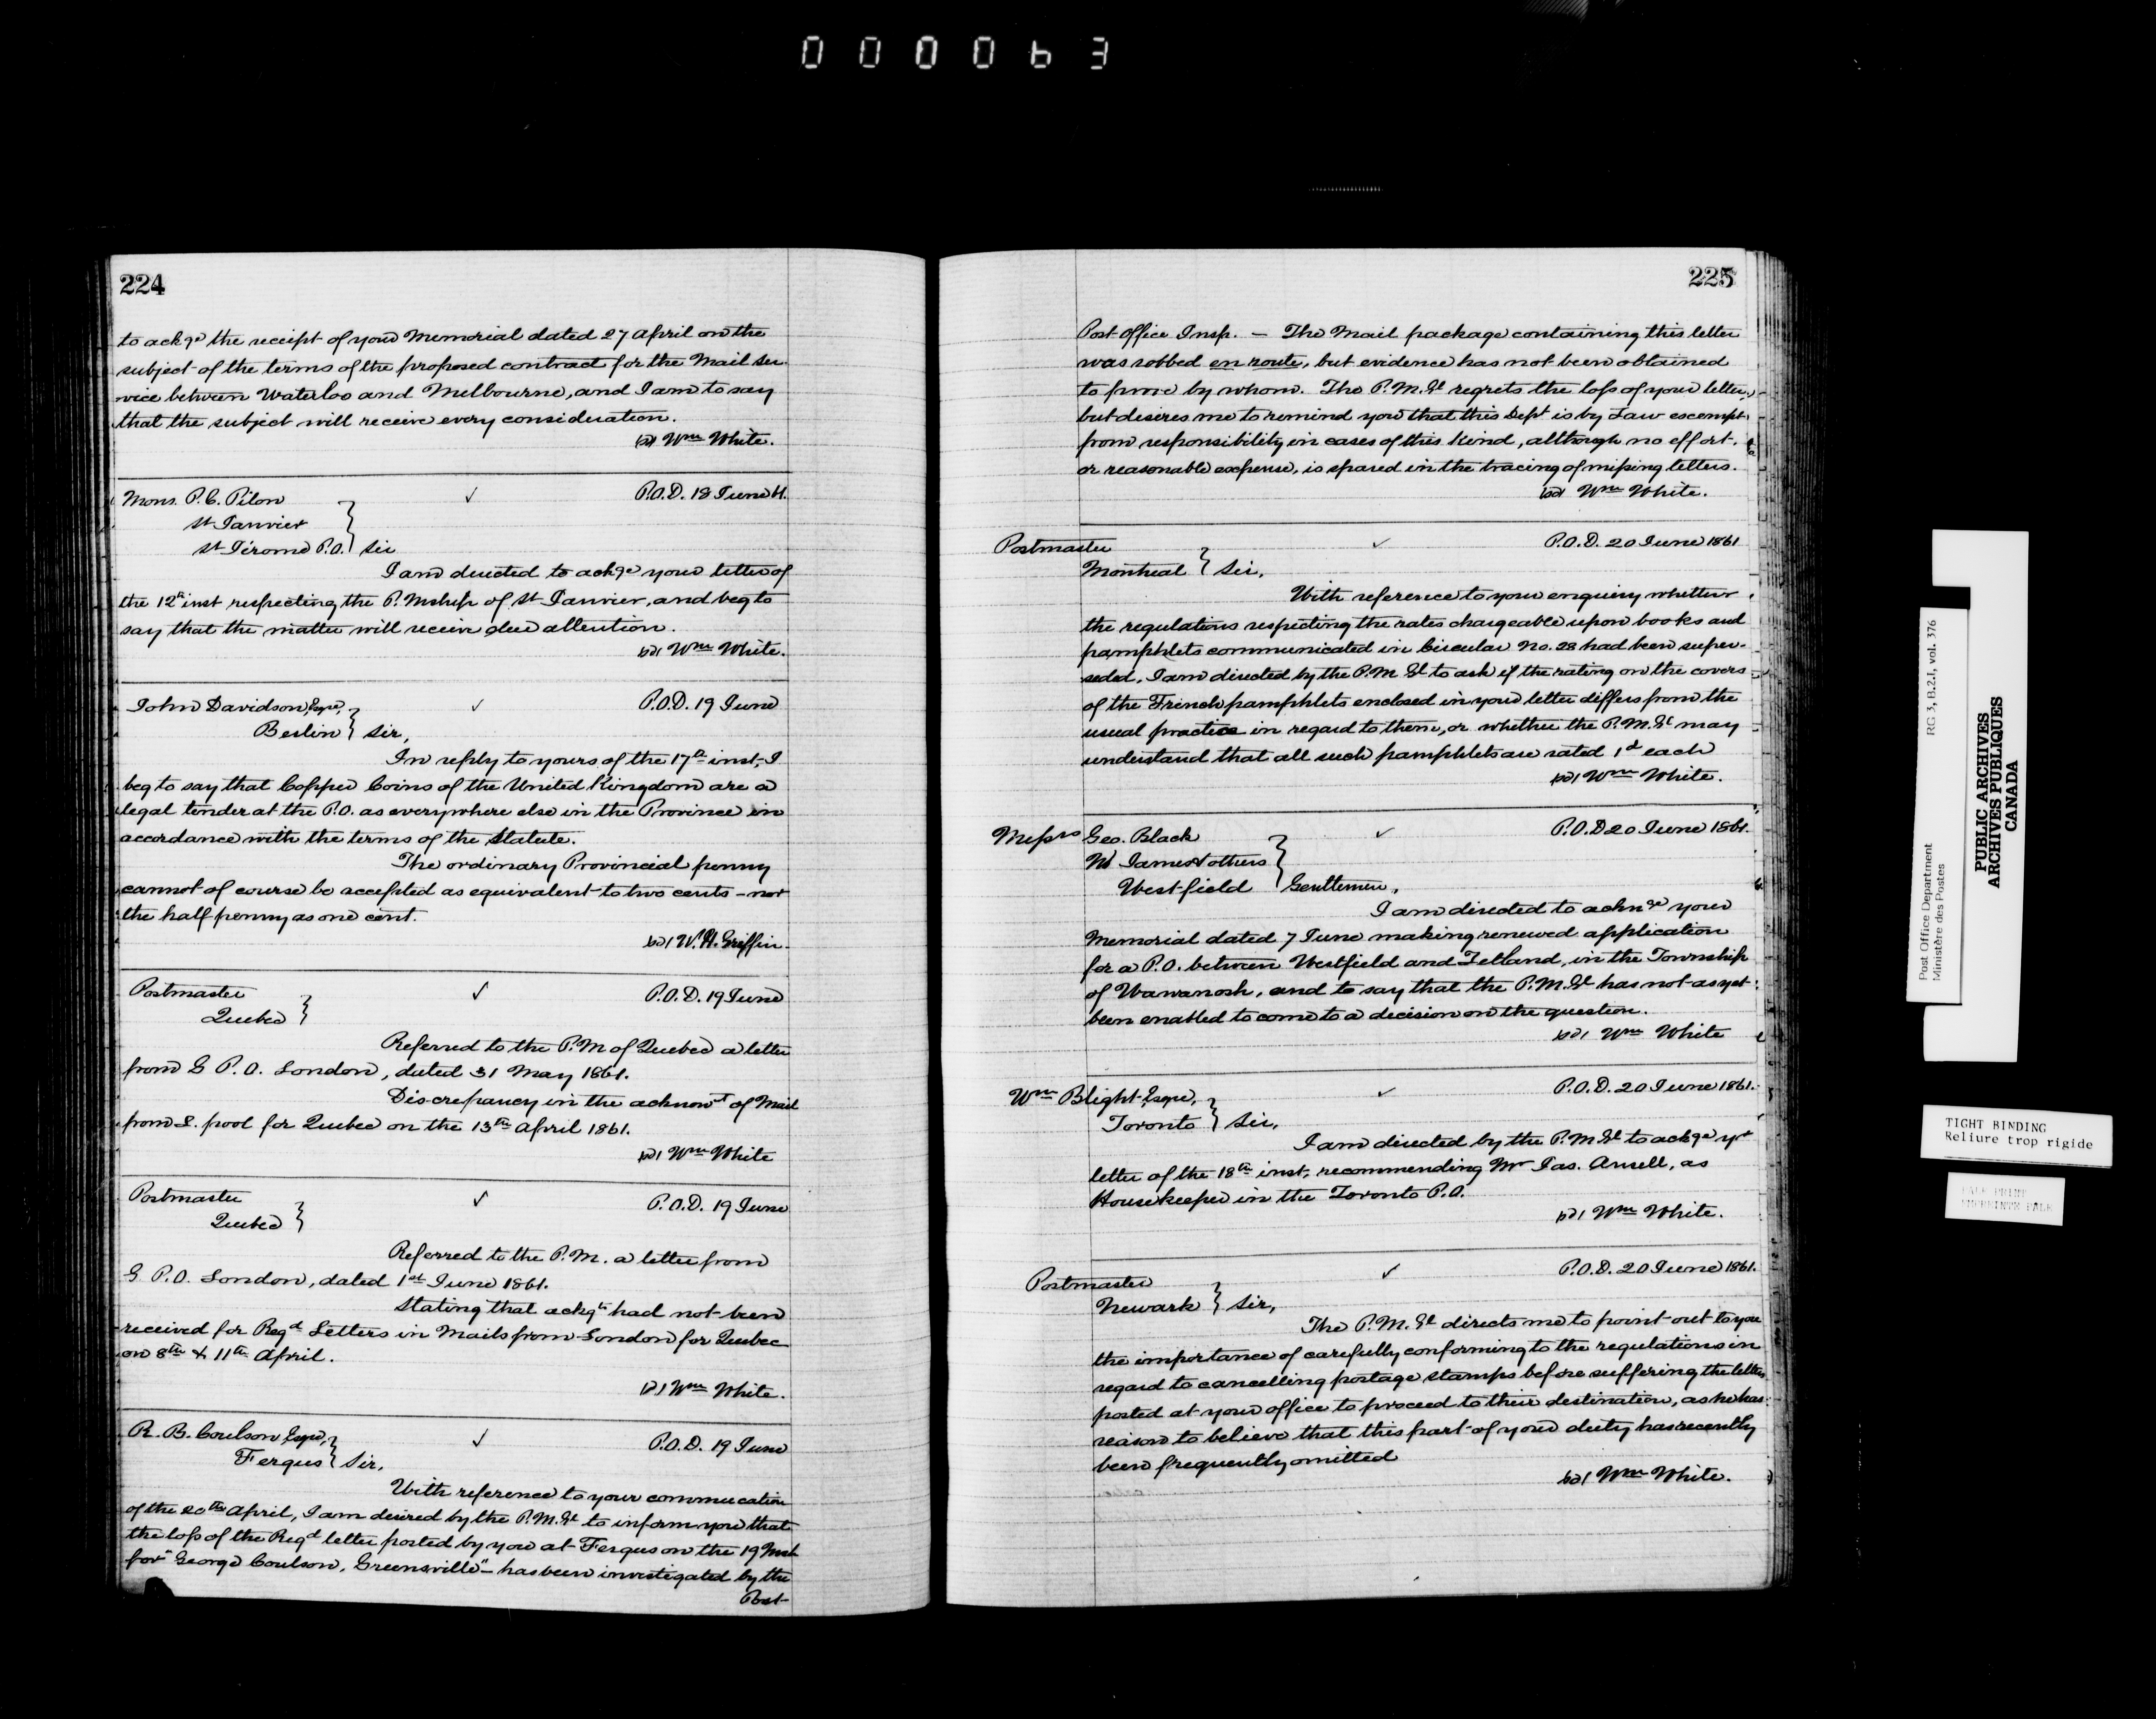 000063
224
to ackge the receipt of your Memorial dated 27 April on the
subject of the terms of the proposed contract for the Mail ser
vice between Waterloo and Melbourne, and I am to say
that the subject will receive every consideration.
(sd) Wm White.
Mons. P. C. Pilon
St Janvier
St Jérome P.O. } Sir
✓
P.O.D. 18 June 61.
I am directed to ackge your letter of
the 12th inst respecting the P.Mship of St Janvier, and beg to
say that the matter will receive due attention.
(sd) Wm White.
John Davidson, Esqre,
Berlin } Sir,
✓
P.O.D. 19 June
In reply to yours of the 17th inst, I
beg to say that Copper Coins of the United Kingdom are a
legal tender at the P.O. as everywhere else in the Province in
accordance with the terms of the Statute.
The ordinary Provincial penny
cannot of course be accepted as equivalent to two cents – nor
the half penny as one cent.
(sd) W. H. Griffin.
Postmaster
Quebec }
✓
P.O.D. 19 June
Referred to the P.M of Quebec a letter
from G P.O. London, dated 31 May 1861.
Discrepancy in the acknowt of Mail
from L. pool for Quebec on the 13th April 1861.
(sd) Wm White
Postmaster
Quebec }
✓
P.O.D. 19 June
Referred to the P.M. a letter from
G P.O. London, dated 1st June 1861.
Stating that ackgt had not been
received for Regd Letters in Mails from London for Quebec
on 8th & 11th April.
(sd) Wm White.
R. B. Coulson Esqre,
Fergus } Sir,
✓
P.O.D. 19 June
With reference to your commucation
of the 20th April, I am desired by the P.M.Gl to inform you that
the loss of the Regd letter posted by you at Fergus on the 19 Inst
for "George Coulson, Greensville" – has been investigated by the
Post
225
Post Office Insp. – The Mail package containing this letter
was robbed en route, but evidence has not been obtained
to prove by whom. The P.M.Gl regrets the loss of your letter,
but desires me to remind you that this Dept is by Law exempt
from responsibility in cases of this kind, although no effort.
or reasonable expense, is spared in the tracing of missing letters.
(sd) Wm White.
Postmaster
Montreal } Sir,
✓
P.O.D. 20 June 1861
With reference to your enquiry whether
the regulations respecting the rates chargeable upon books and
pamphlets communicated in Circular No. 28 had been super-
seded, I am directed by the P.M Gl to ask if the rating on the covers
of the French pamphlets enclosed in your letter differs from the
usual practice in regard to them, or whether the P.M.Gl may
understand that all such pamphlets are rated 1d each
(sd) Wm White.
Messrs Geo. Black
Wd James & others
Westfield } Gentlemen,
✓
P.O.D 20 June 1861.
I am directed to acknge your
Memorial dated 7 June making renewed application
for a P.O. between Westfield and Zetland, in the Township
of Wawanosh, and to say that the P.M.Gl has not as yet
been enabled to come to a decision on the question.
(sd) Wm White
Wm Blight Esqre,
Toronto } Sir,
✓
P.O.D. 20 June 1861.
I am directed by the P.M Gl to ackge yr
letter of the 18th inst, recommending Mr Jas. Ansell, as
Housekeeper in the Toronto P.O.
(sd) Wm White.
Postmaster
Newark } Sir,
✓
P.O.D. 20 June 1861.
The P.M.Gl directs me to point out to you
the importance of carefully conforming to the regulations in
regard to cancelling postage stamps before suffering the letters
posted at your office to proceed to their destination, as he has
reason to believe that this part of your duty has recently
been frequently omitted
(sd) Wm White.
Post Office Department
Ministère des Postes
RG 3, B.2.I, vol. 376
PUBLIC ARCHIVES
ARCHIVES PUBLIQUES
CANADA
TIGHT BINDING
Reliure trop rigide
PALE PRINT
IMPRESSION PALE